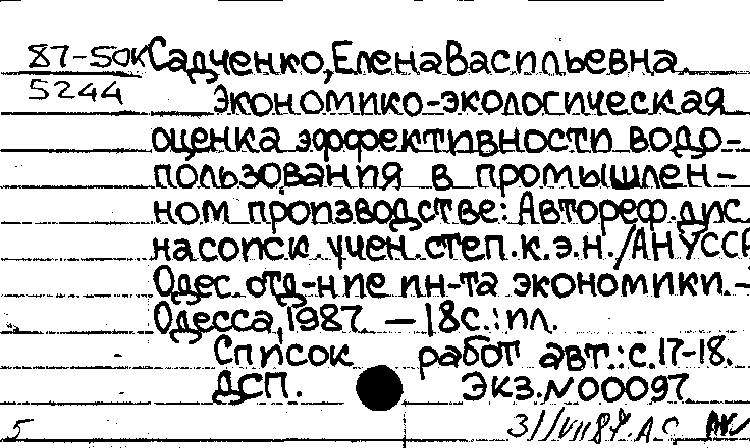 87-50к Садченко, Елена Васильевна.
5244 Экономико-экологическая
оценка эффективности водо-
пользования в промышлен-
ном производстве: Автореф. дис.
на соиск. учен. степ. к.э.н. / АН УССР
Одес. отд-ние ин-та экономики. –
Одесса, 1987. – 18с.: ил.
Список работ авт.: с. 17-18.
ДСП. Экз. N00097
5